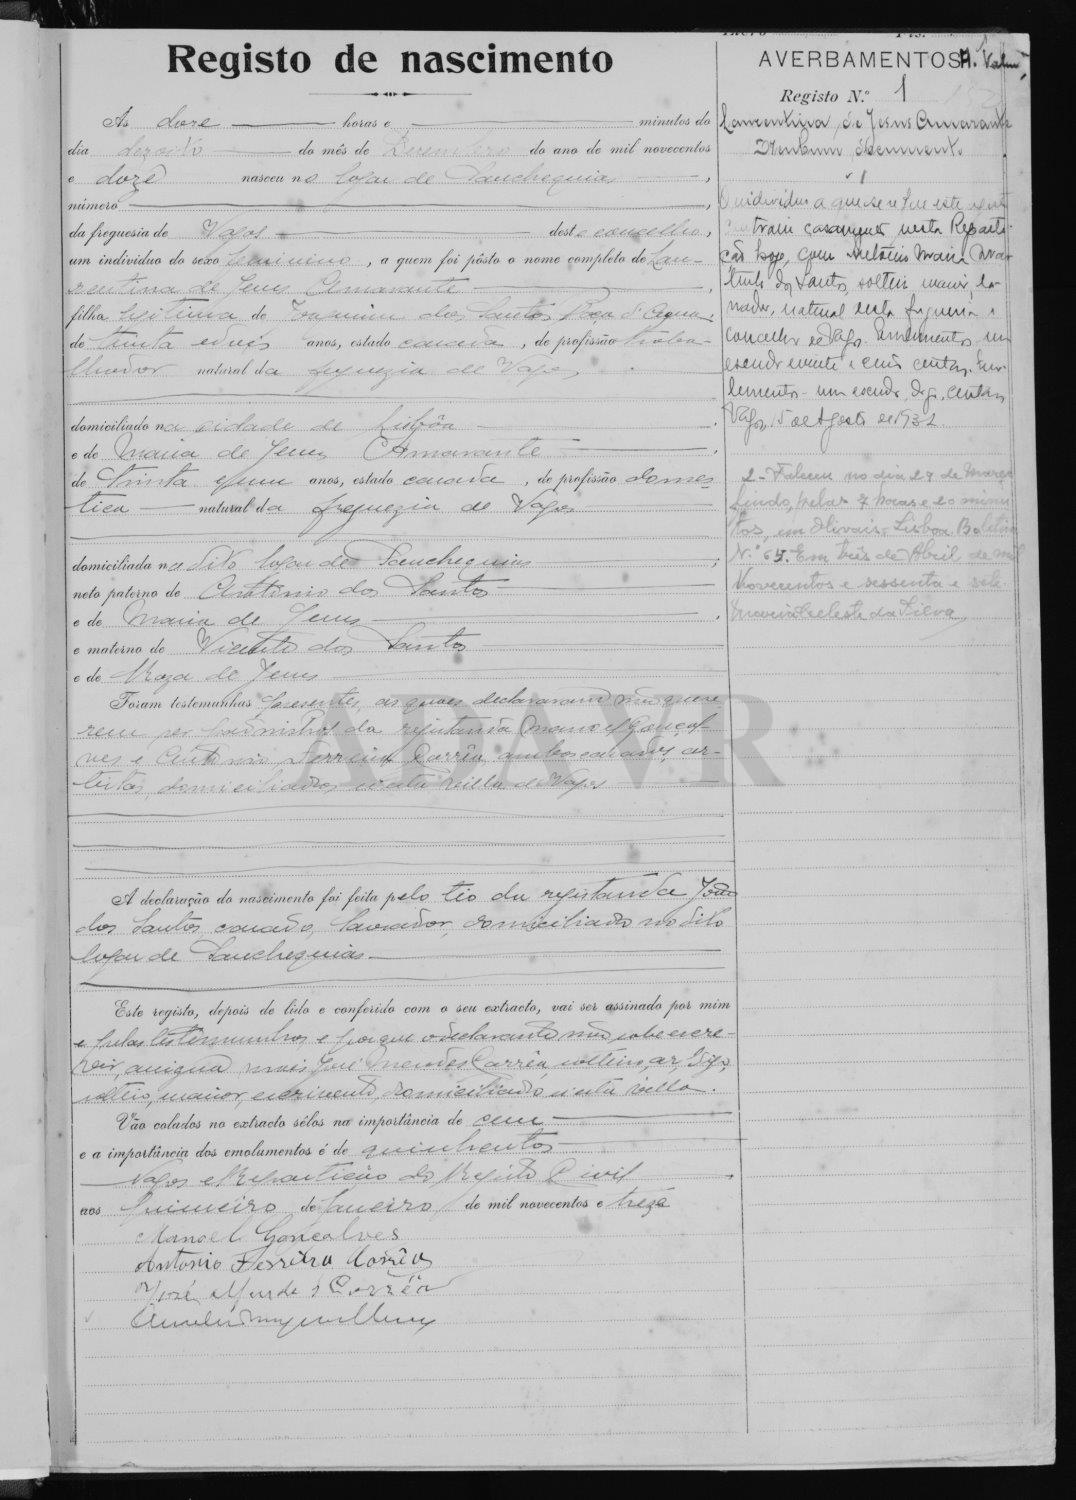 Registo de nascimento
Ás doze horas e minutos do
dia dezoito do mês de Dezembro do ano de mil novecentos
e doze nasceu no logar de Sanchequias,
número
da freguesia de Vagos deste concelho,
um individuo do sexo feminino, a quem foi pôsto o nome completo de Lau-
rentina de Jesus Amarante
filha legitima de Joaquim dos Santos
de trinta e dois anos, estado casado, de profissão traba-
lhador natural da freguezia de Vagos
domiciliado na cidade de Lisbôa
e de Maria de Jesus Amarante,
de trinta e um anos, estado casada, de profissão domes-
tica natural da freguezia de Vagos
domiciliada no dito logar de Sanchequias;
neto paterno de Antonio dos Santos
e de Maria de Jesus,
e materno de Vicente dos Santos
e de Roza de Jesus
Foram testemunhas presentes, as quaes declararam não quere-
rem ser da registanda Manoel Gonçal-
ves e Antonio Ferreira Corrêa, ambos casados, ar-
tistas, domiciliados nesta villa de Vagos
ADAVR
A declaração do nascimento foi feita pelo tio da registanda João
dos Santos, casado, lavrador, domiciliado no dito
logar de Sanchequias
Este registo, depois de lido e conferido com o seu extracto, vai ser assinado por mim
e pelas testemunhas e porque o declarante não sabe escre-
ver, assigna José Mendes Corrêa, solteiro,
maior, domiciliado nesta villa.
Vão colados no extracto sêlos na importância de cem
e a importância dos emolumentos é de quinhentos
Vagos e Repartição do Registo Civil
aos primeiro de Janeiro de mil novecentos e treze
Manoel Gonçalves
Antonio Ferreira Corrêa
José Mendes Corrêa
AVERBAMENTOS
Registo N.º 1
Laurentina de Jesus Amarante
1
O individuo a que se refere este registo
contraiu casamento nesta Reparti-
ção hoje, com Maria
dos Santos, solteiro, maior,
natural desta freguesia e
concelho de Vagos. Emolumentos um
escudo e centavos.
um escudo, centavos
Vagos, 15 de Agosto de 1932.
2 - Faleceu no dia 29 de Março
findo, pelas 7 horas e 20 minu-
tos, em Olivais, Lisboa. Boletim
N.º 65. Em três de Abril de mil
novecentos e sessenta e sete.
Maria Celeste da Silva